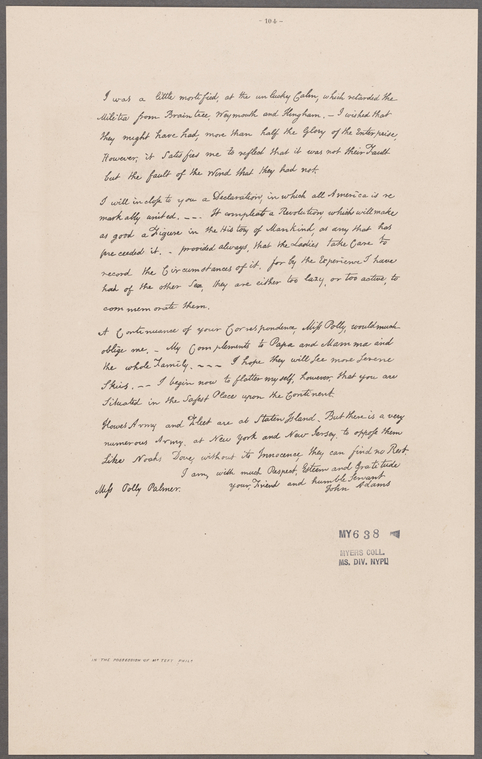 - 104 -
I was a little mortified, at the unlucky Calm, which retarded the
Militia from Braintree Weymouth and Hingham. - I wished that
they might have had, more than half the Glory of the Enterprise,
However, it Satisfies me to reflect that it was not their Fault
but the fault of the Wind that they had not.
I will inclose to you a Declaration, in which all America is re
markably united. - - . It compleats a Revolution, which will make
as good a Figure in the History of Mankind, as any that has
preceeded it. - provided always, that the Ladies take Care to
record the Circumstances of it, for by the Experience I have
had of the other Sex, they are either too lazy, or too active, to
commemorate them.
A Continuance of your Correspondence, Miss Polly, would much
oblige me. - My Compliments to Papa and Mamma and
the whole Family. - - - - I hope they will see more Serene
Skies. - - I begin now to flatter myself, however, that you are
Situated in the Safest Place upon the Continent.
Howes Army and Fleet are at Staten Island. But there is a very
numerous Army, at New York and New Jersey, to oppose them
Like Noahs Dove, without its Innocence, they can find no Rest.
I am, with much Respect, Esteem and Gratitude
your, Friend and humble Servant
Miss Polly Palmer.
John Adams
MY 638
MYERS COLL.
MS. DIV. NYPL
IN THE POSSESSION OF MR TEFT